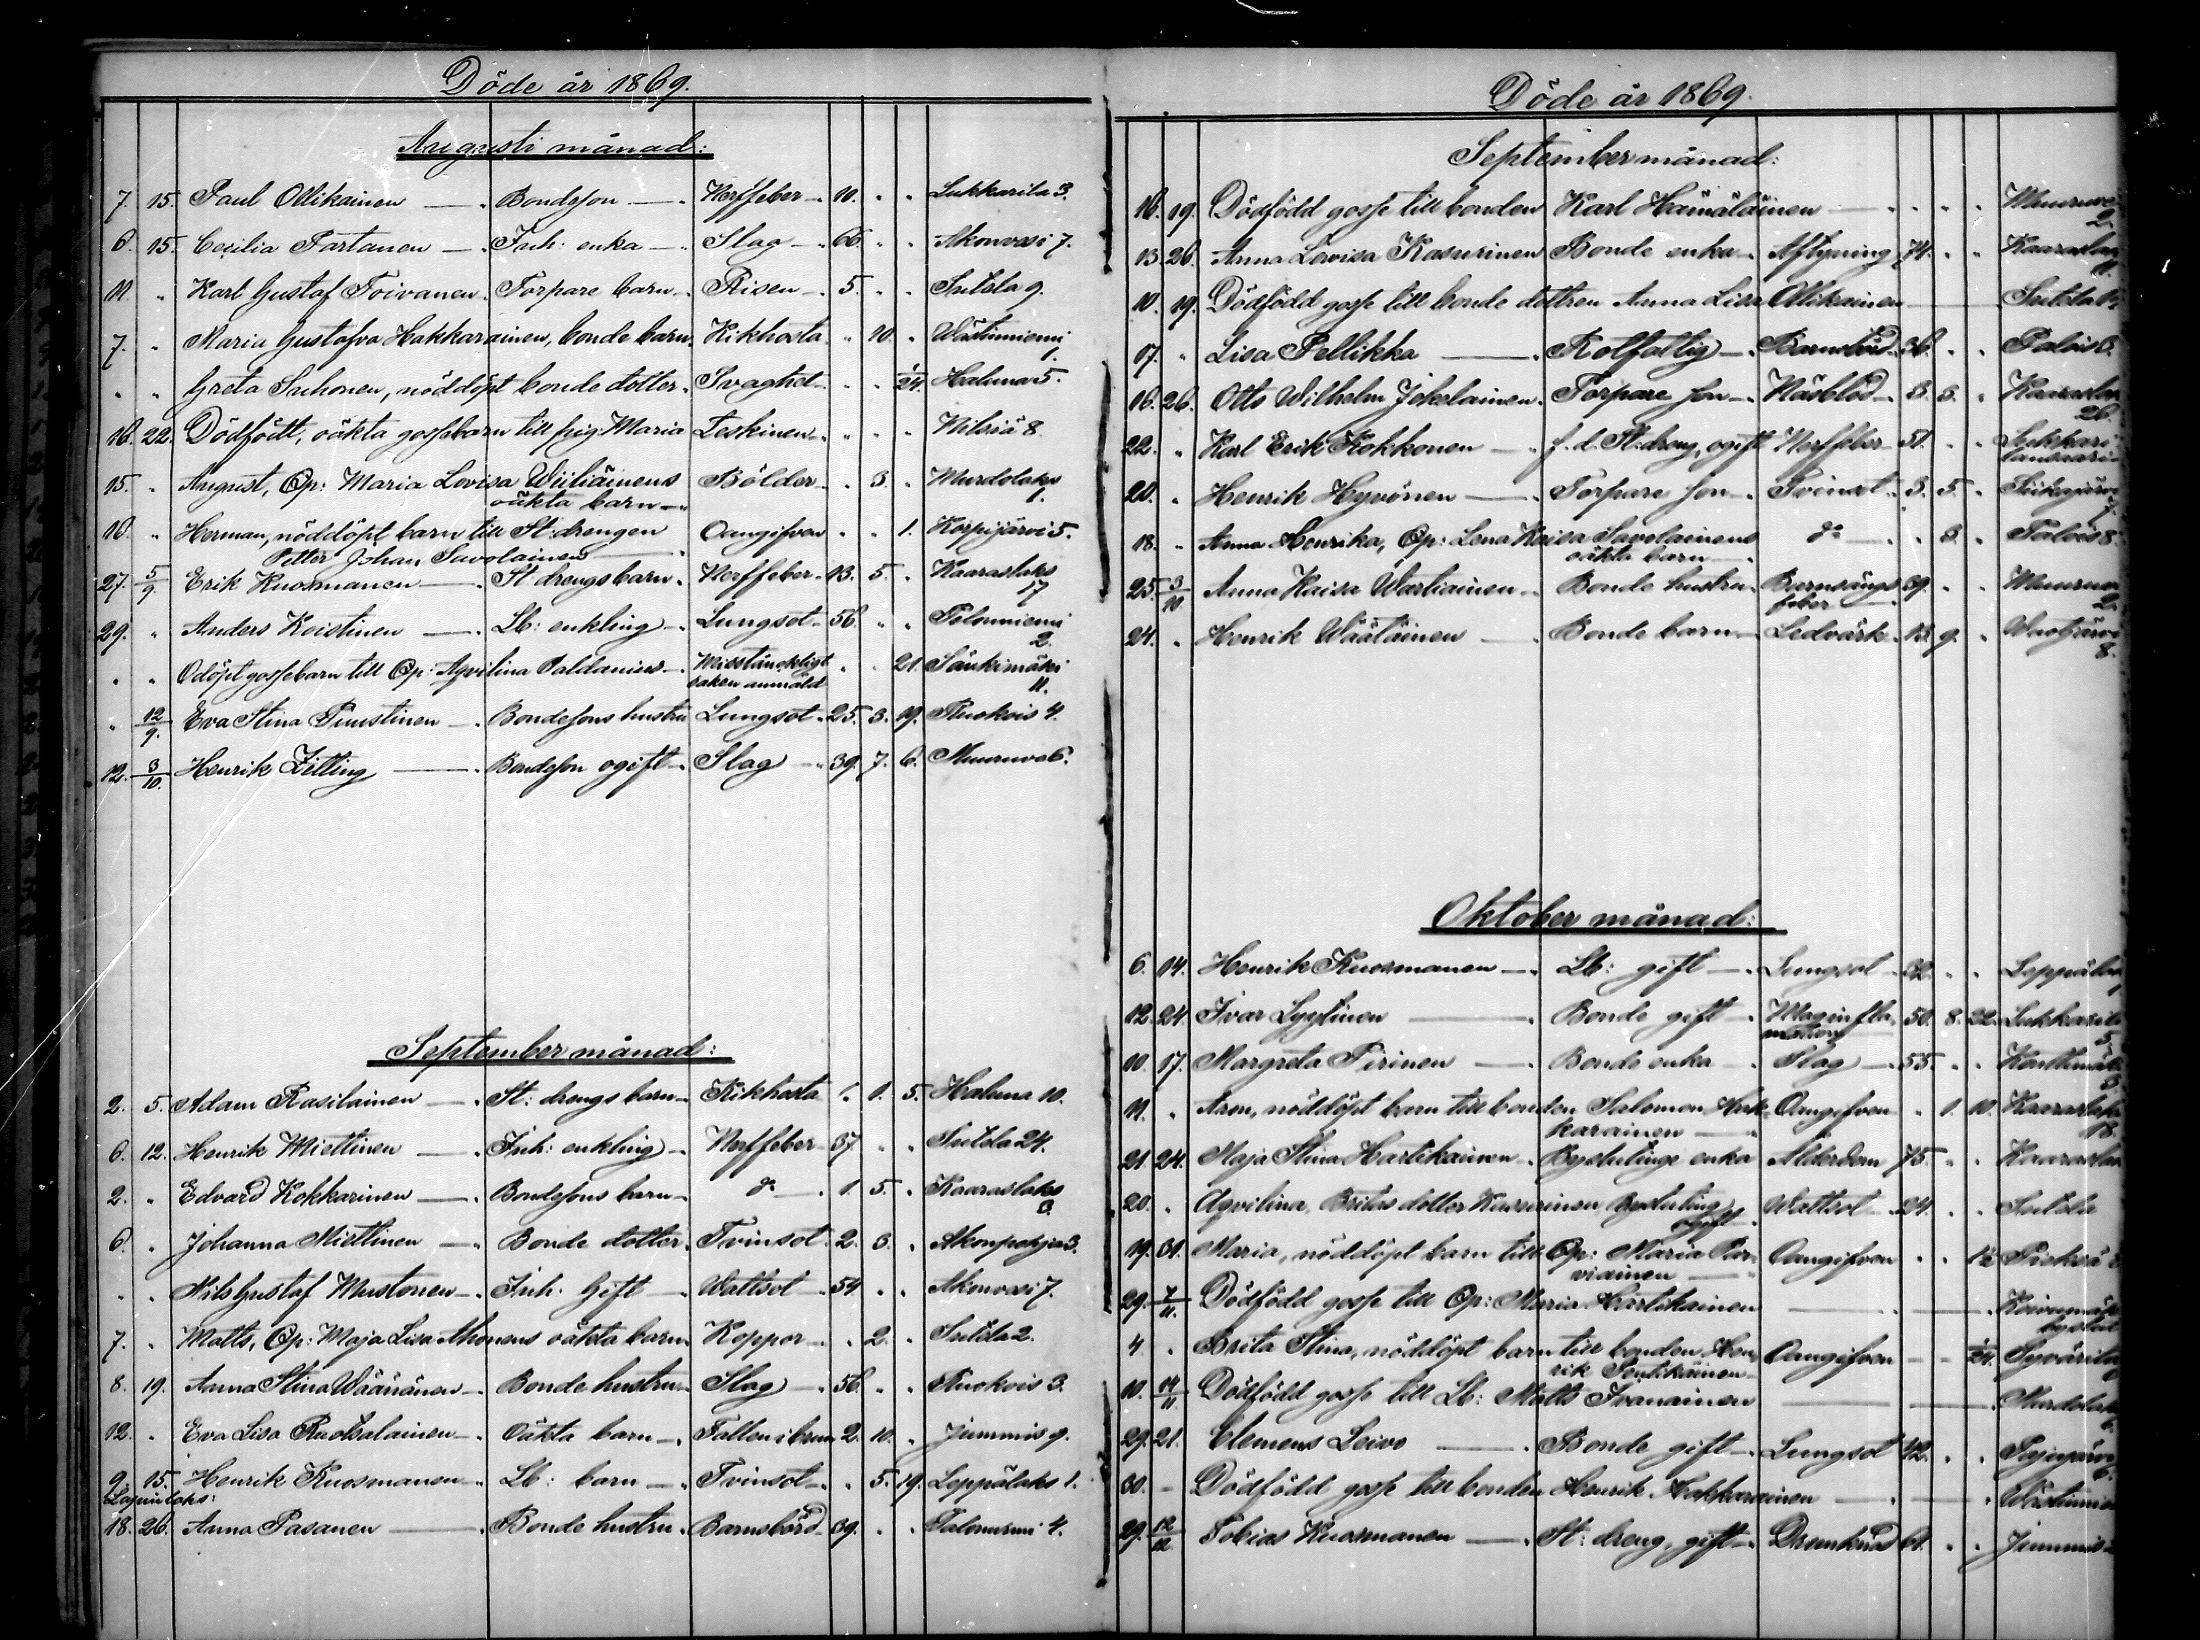 Döde år 1869.
Augusti månad:
7. 15. Paul Ollikainen — Bondeson — Nerffeber 10. " " Lukkarila 3.
6. 15. Cecilia Partanen — Inh: enka — Slag — 66. " " Akonvesi 7.
11. " Karl Gustaf Toivanen. Torpare barn — Risen — 5. " " Sutela 9.
7. " Maria Gustafva Hakkarainen, bonde barn. Kikhosta " 10. " Wästinniemi 1.
" " Greta Suhonen, nöddöpt bonde dotter. Svaghet " " 1/24. Haluna 5.
16. 22. Dödfödt, oäkta gossebarn till pig. Maria Leskinen " " " Nilsiä 8.
15. " August, Qp: Maria Lovisa Wiiliäinens Bölder " 3. " Murdolaks 1.
oäkta barn —
18. " Herman, nöddöpt barn till St: drengen Oangifven " " 1. Korpijärvi 5.
Petter Johan Savolainen
27. 5/9. Erik Kuosmanen — St drengs barn. Nerffeber 13. 5. " Kaaraslaks 17
29. " Anders Koistinen — Lb: enkling — Lungsot 56. " " Pelonniemi 2.
" " Odöpt gossebarn till Qp: Agvilina Paldanius — Misstänkligt " " 21. Sänkimäki
saken anmäld 11.
" 12/9. Eva Stina Puustinen — Bondesons hustru Lungsot 25. 3. 19. Ruokois 4.
12. 3/10. Henrik Zitting — Bondeson ogift — Slag — 39. 7. 6. Muuruvesi 6.
September månad:
2. 5. Adam Rasilainen — St: drengs barn — Kikhosta 1. 1. 5. Haluna 10.
6. 12. Henrik Miettinen — Inh: enkling — Nerffeber 37. " " Sutela 24.
2. " Edvard Kokkarinen — Bondesons barn — d:o — 1. 5. " Kaaraslaks 3.
6. " Johanna Miettinen — Bonde dotter. Tvinsot. 2. 3. " Akonpohja 3.
" " Nils Gustaf Mustonen — Inh: Gift — Wattsot — 54 " " Akonvesi 7.
7. " Matts, Qp: Maja Lisa Ahonens oäkta barn. Koppor — " 2. " Sutela 2.
8. 19. Anna Stina Wäänänen — Bonde hustru — Slag — 56. " " Ruokois 3.
12. " Eva Lisa Raatsalainen — Oäkta barn — Fallen i brun 2. 10. " Jummis 9.
9. 15. Henrik Kuosmanen — Lb: barn — Tvinsot — " 5. 19. Leppälaks 1.
Lapinlaks:
18. 26. Anna Pasanen — Bonde hustru. Barnsbörd 39. " " Talonurmi 4.
Döde år 1869.
September månad:
16. 19. Dödfödd gosse till bonden Karl Hämäläinen — " " " Muuruve 2.
13. 26. Anna Lovisa Kasurinen Bonde enka — Aftyning 74. " " Kaaraslak
10. 19. Dödfödd gosse till bonde dottren Anna Lisa Ollikainen Sutela
17. " Lisa Pellikka — Rotfattig — Barnsbörd 36. " " Palois 6.
16. 26. Otto Wilhelm Jokelainen. Torpare son — Näsblod — 3. 5. " Kaaraslak 26.
22. " Karl Erik Kokkonen — f. d. St: dreng, ogift Nerffeber 51. " " Lukkari
20. " Henrik Hyvönen — Torpare son — Tvinsot 3. 5. " Siikajärvi 7.
18. " Anna Henrika, Qp: Lena Kaisa Savolainens d:o — " 3. " Palois 8.
oäkta barn —
25. 3/10 Anna Kaisa Wartiainen — Bonde hustru — Barnsängs 39. " " Muuruve
feber 2.
24. " Henrik Wäätäinen — Bonde barn — Ledvärk — 13. 9. " Waotjärvi 8.
Oktober månad:
6. 14. Henrik Kuosmanen — Lb: gift — Lungsot 32. " " Leppälak
12. 24. Ivar Lyytinen — Bonde gift — Maginfla 50. 8. 22. Lukkarila
mation 3.
10. 17. Margreta Pirinen — Bonde enka — Slag — 55. " " Konttimäk
11. " Aron, nöddöpt barn till bonden Salomon Hak Oangifven " 1. 10. Kaaraslaks
karainen — 18.
21. 24. Maja Stina Hartikainen — Bysketings enka Ålderdom 75. " " Kaaraslak
20. " Agvilina, Britas dotter Kasurinen Wattsot 24. " " Sutela
ogift
19. 31. Maria, nöddöpt barn till Qp: Maria Par Oangifven " "
viainen —
29. 7/11. Dödfödd gosse till Qp: Maria Hartikainen
4. " Brita Stina, nöddöpt barn till bonden Hen Oangifven — 1/24. Syvärila
rik Pentikäinen
10. 14/11. Dödfödd gosse till Lb: Matts Ivanainen — Murdolak
29. 21. Clemens Leivo — Bonde gift — Lungsot 42. " " Pajujärvi
30. — Dödfödd gosse till bonden Henrik Hakkarainen — Wästinnie
29. 12/12 Tobias Kuosmanen — St: dreng, gift — Drunknad 61. " " Jummis